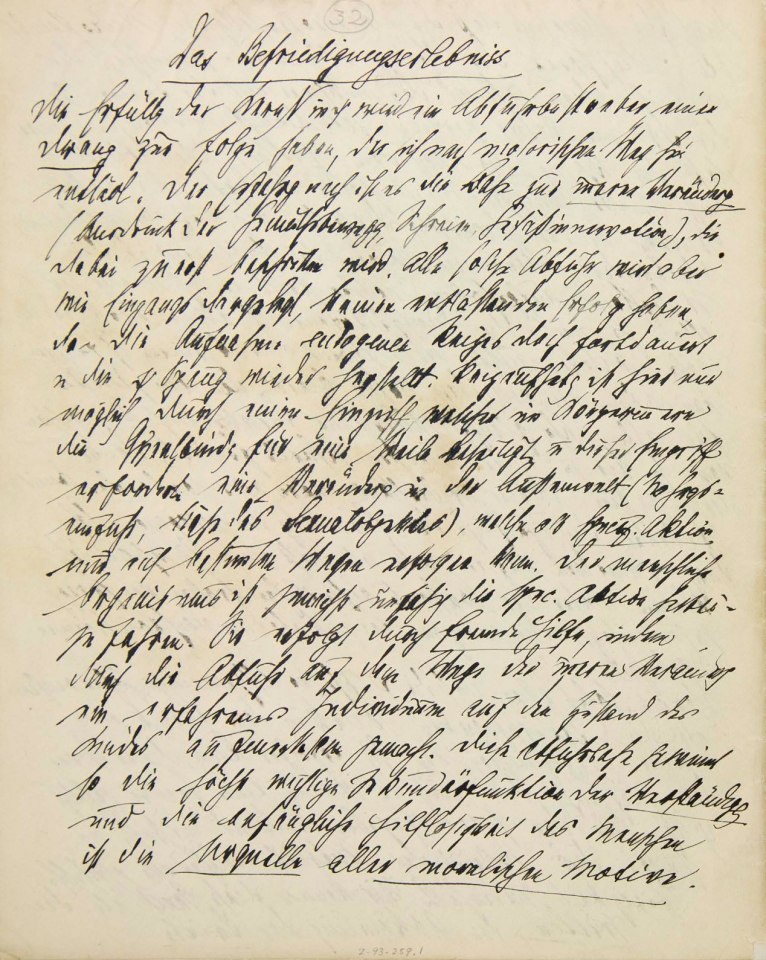 32
Das Befriedigungserlebniss
Die Erfüllg der Kern N in ψ wird ein Abfuhrbestreben einen
Drang zur Folge haben, der sich nach motorischem Weg hin
entlädt. Der Erfahrg nach ist es die Bahn zur inneren Veränderg
(Ausdruck der Gemüthsbewegg, Schreien, Gefäßinnervation), die
dabei zuerst beschritten wird. Alle solche Abfuhr wird aber
wie Eingangs dargelegt, keinen entlastenden Erfolg haben,
da die Aufnahme endogenen Reizes doch fortdauert
u die ψ Spang wieder herstellt. Reizaufhebg ist hier nur
möglich durch einen Eingriff, welcher im Körperinnern
die für eine Weile beseitigt, u dieser Eingriff
erfordert eine Veränderg in der Außenwelt (Nahrgs-
zufuhr, Nähe des Sexualobjektes), welche als spezif. Aktion
nur auf bestimten Wegen erfolgen kann. Der menschliche
Organismus ist zunächst unfähig die spec. Aktion herbei-
zuführen. Sie erfolgt durch fremde Hilfe, indem
durch die Abfuhr auf dem Wege der inneren Veränderg
ein erfahrenes Individuum auf den Zustand des
Kindes aufmerksam gemacht. Diese Abfuhrbahn gewinnt
so die höchst wichtige Sekundärfunktion der Verständigg
und die anfängliche Hilflosigkeit des Menschen
ist die Urquelle aller moralischen Motive.
2-93-259.1